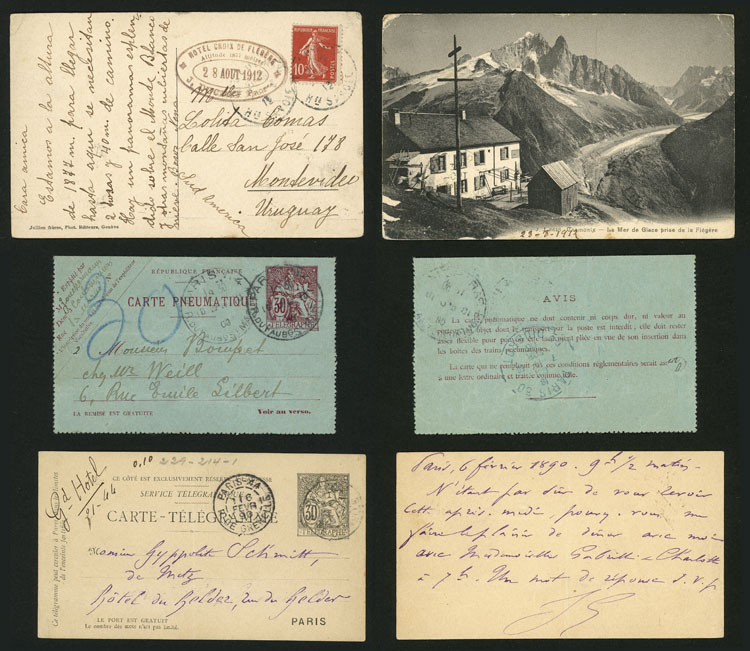 Cara amica
Estamos a la altura
de 1877 m. para llegar
hasta aqui se necesitan
2 horas y 40 m. de camino.
Hay un panorama esplen-
dido sobre el Monte Blanco
y otras montañas cubiertas de
Jullien frères, Phot. Editeurs, Genève
HOTEL CROIX DE FLÉGÈRE
Altitude 1877 mètres
28 AOUT 1912
10c
POSTES
Mlle
Lolita Comas
Calle San José 178
Montevideo
Uruguay
Sud America
23-8-1912
Chamonix - La Mer de Glace prise de la Flégère
RÉPUBLIQUE FRANÇAISE
CARTE PNEUMATIQUE
30
TELEGRAPHE
30
Monsieur
chez Mr Weill
6, Rue Emile Gilbert
LA REMISE EST GRATUITE
Voir au verso.
AVIS
La carte pneumatique ne doit contenir ni corps dur, ni valeur au
porteur. Les objets dont le transport par la poste est interdit; elle doit rester
assez flexible pour pouvoir être facilement pliée en vue de son insertion dans
les boîtes des trains pneumatiques.
La carte qui ne remplirait pas ces conditions réglementaires serait
à une lettre ordinaire et traitée comme telle.
0.10
229-214-1
Gd Hotel
CE CÔTÉ EST EXCLUSIVEMENT RÉSERVÉ
SERVICE TÉLÉGRAPHIQUE
CARTE-TÉLÉGRAMME
30
PARIS-44
6
FEVR
90
R. DE GRENELLE
Ce télégramme peut circuler à Paris, dans les limites
de l'enceinte fortifiée
Monsieur Hyppolite Schmitt,
de Metz
Hôtel du Helder, rue du Helder
LE PORT EST GRATUIT
Le nombre des mots n'est pas limité.
PARIS
Paris, 6 février 1890. 9h 1/2 matin
N'étant pas sûr de vous revoir
cette après-midi, pouvez-vous me
faire le plaisir de dîner avec moi
avec Mademoiselle Gabrielle et Charlotte
à 7h. Un mot de réponse S.V.P.